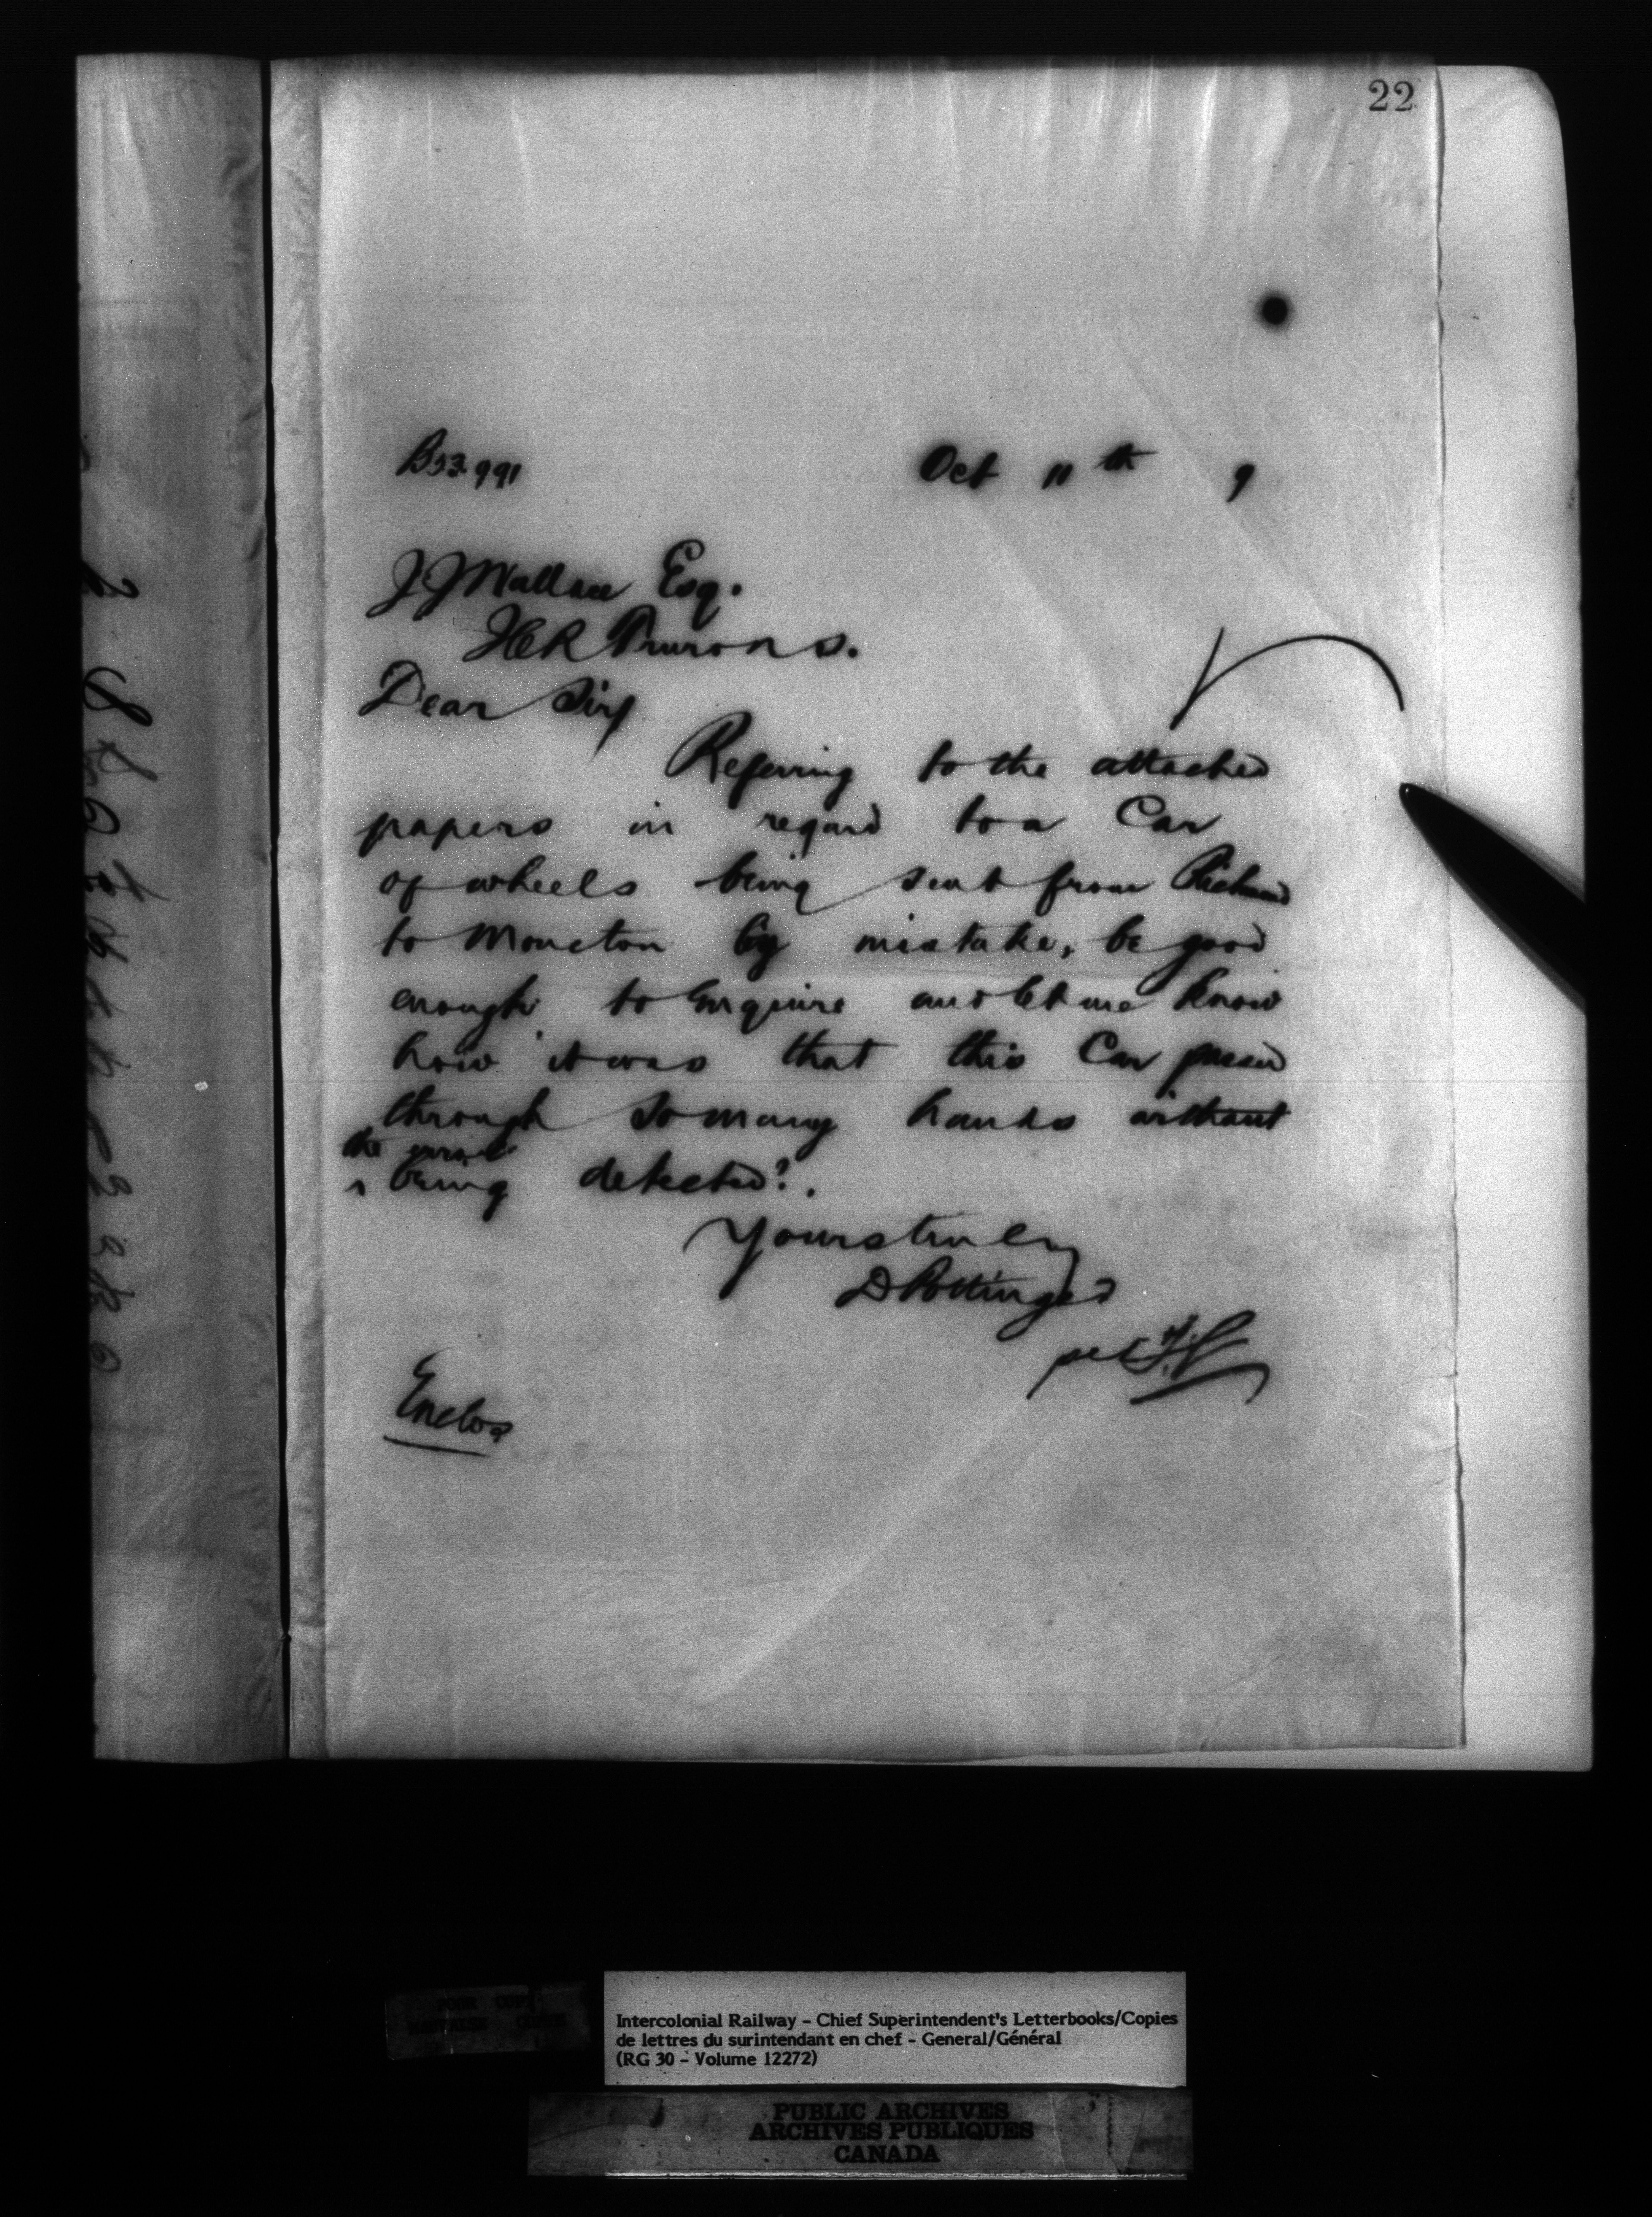 22
B53991
Oct 11th 9
J J Wallace Esq.
Dear Sir
Referring to the attached
papers in regard to a Car
of wheels being sent from Richmond
to Moncton by mistake, be good
enough to enquire and let me know
how it was that this Car passed
through so many hands without
the error
being detected?.
Yours truly
D Pottinger
per
Enclos
Intercolonial Railway - Chief Superintendent's Letterbooks/Copies
de lettres du surintendant en chef - General/Général
(RG 30 - Volume 12272)
PUBLIC ARCHIVES
ARCHIVES PUBLIQUES
CANADA